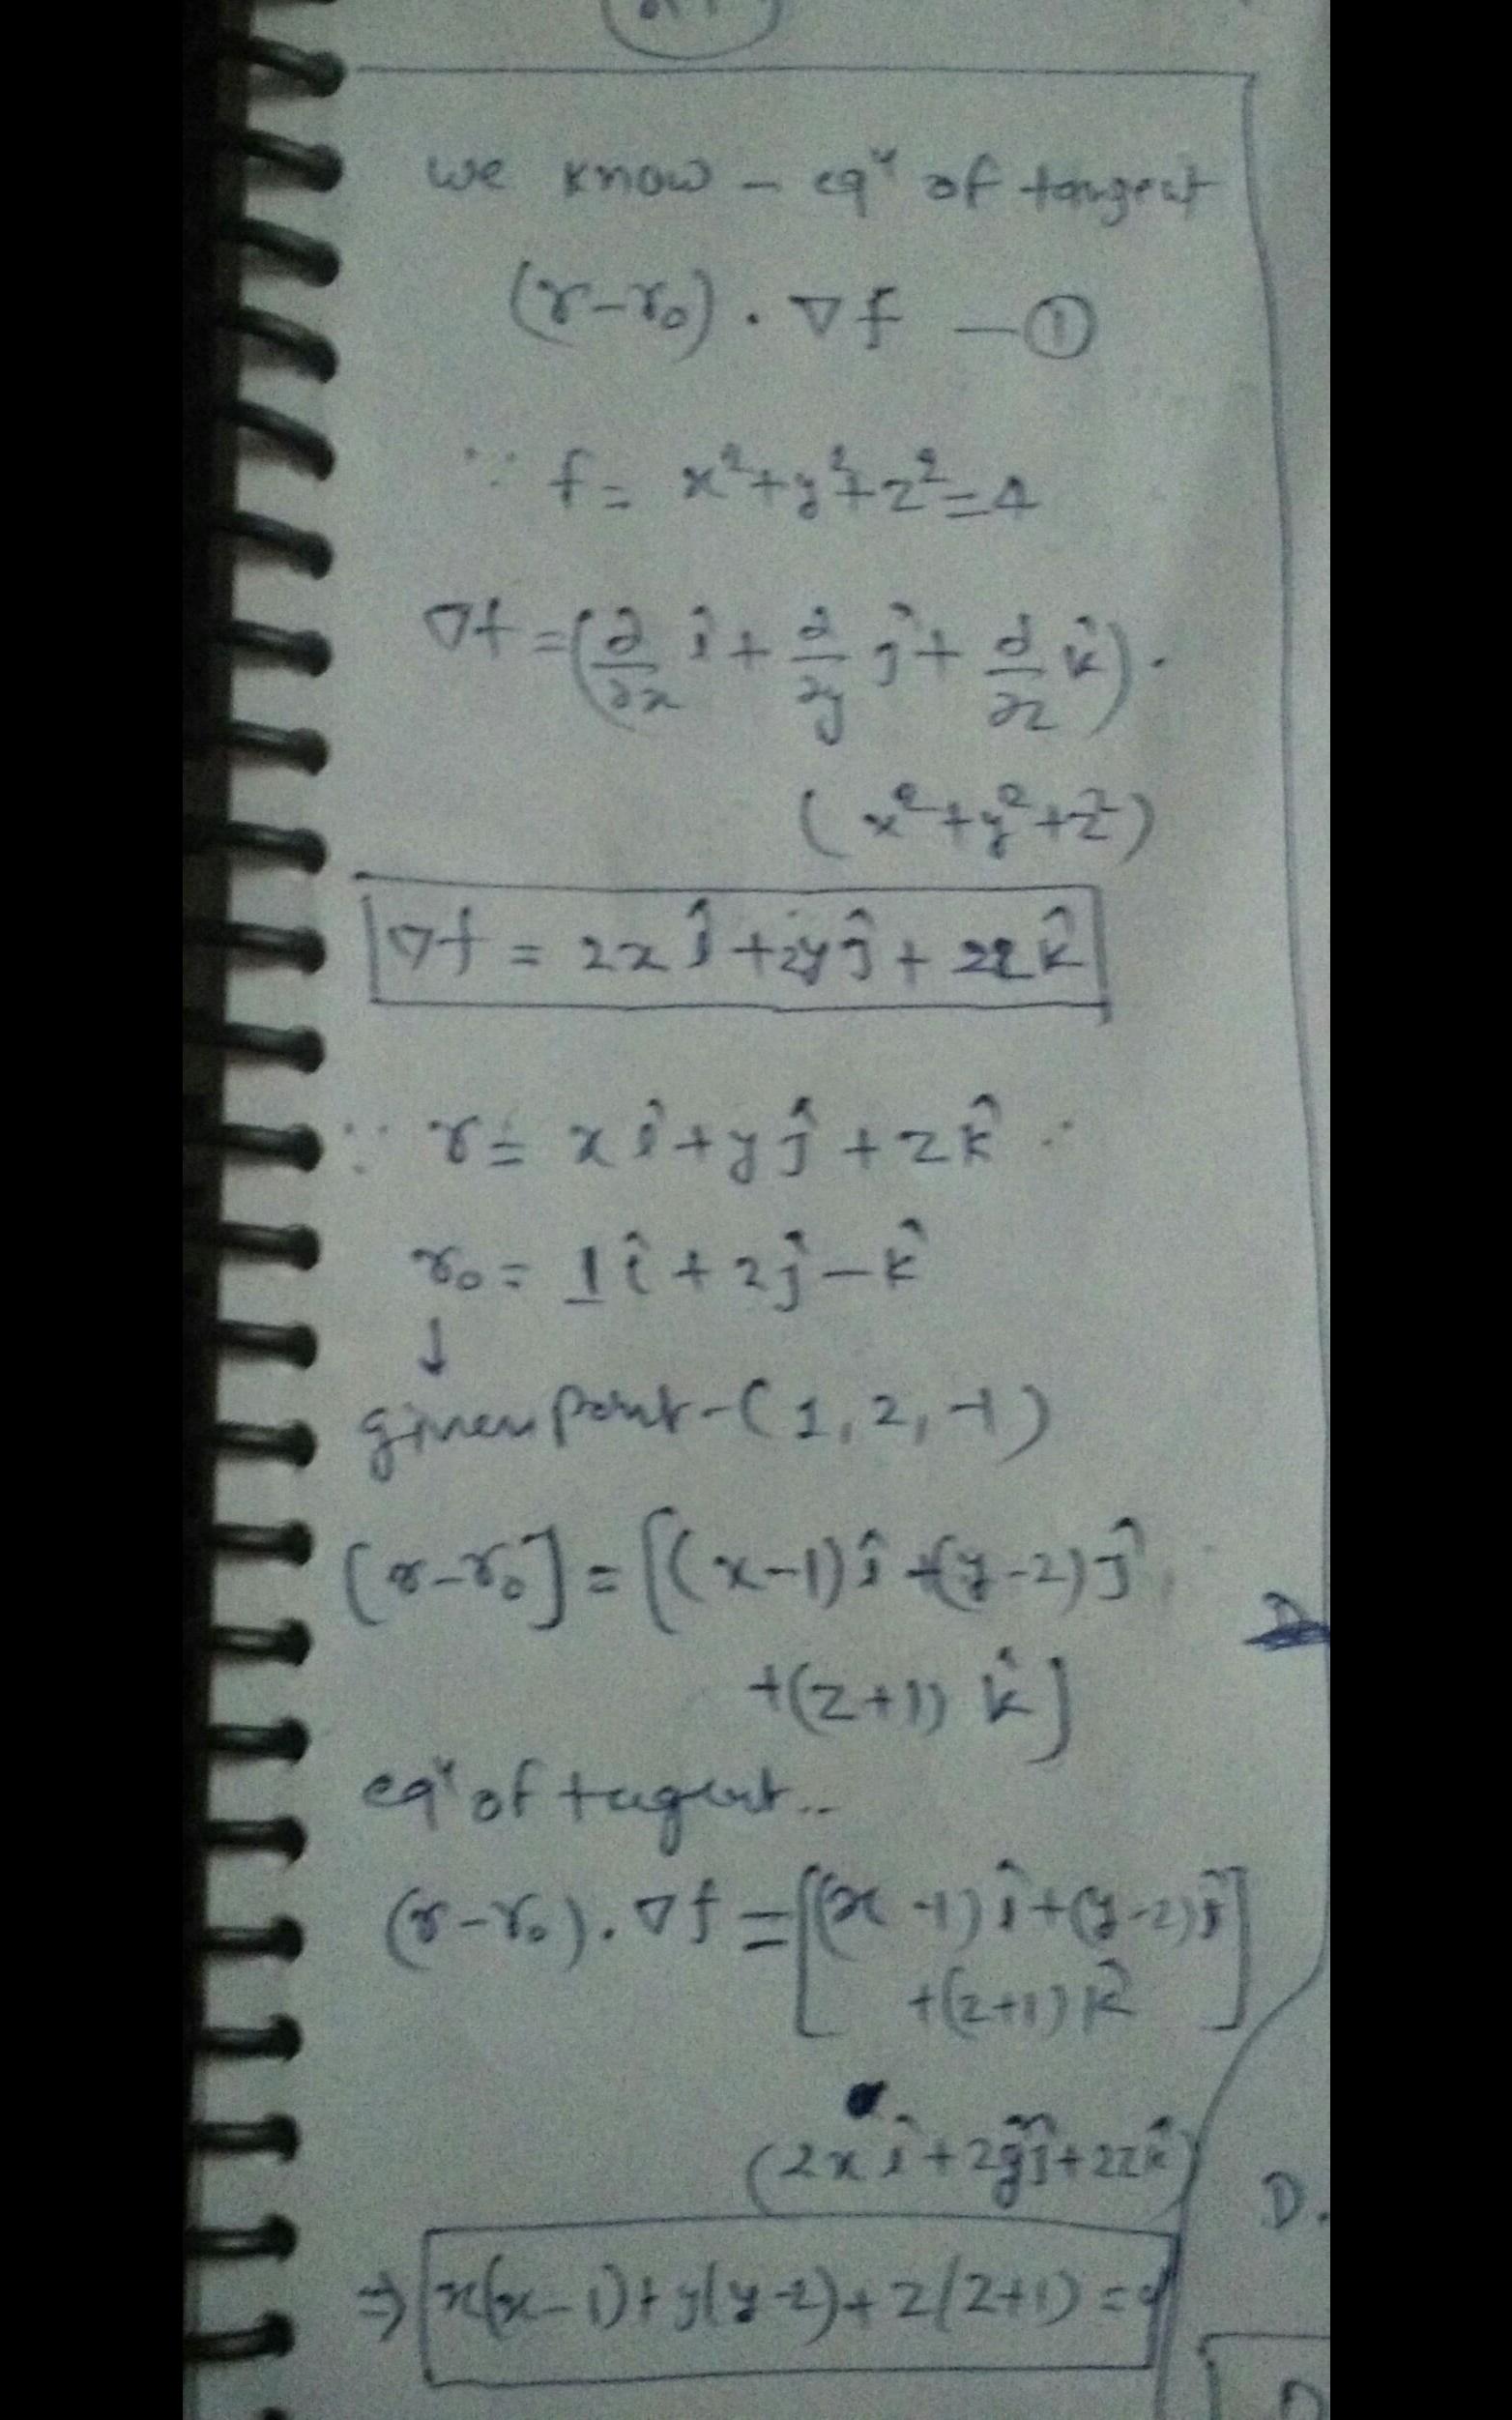 we know - eqⁿ of tangent
(r-r₀) . ∇f —①
∵ f = x²+y²+z²=4
∇f = (∂/∂x î + ∂/∂y ĵ + ∂/∂z k̂) .
(x²+y²+z²)
∇f = 2x î + 2y ĵ + 2z k̂
∵ r = x î + y ĵ + z k̂
r₀ = 1 î + 2 ĵ - k̂
↓
given point - (1, 2, -1)
[r-r₀] = [(x-1) î + (y-2) ĵ
+(z+1) k̂]
eqⁿ of tagent..
(r-r₀) . ∇f = [(x-1) î + (y-2) ĵ
+(z+1) k̂]
(2x î + 2y ĵ + 2z k̂)
D.
⇒ x(x-1) + y(y-2) + z(z+1) =